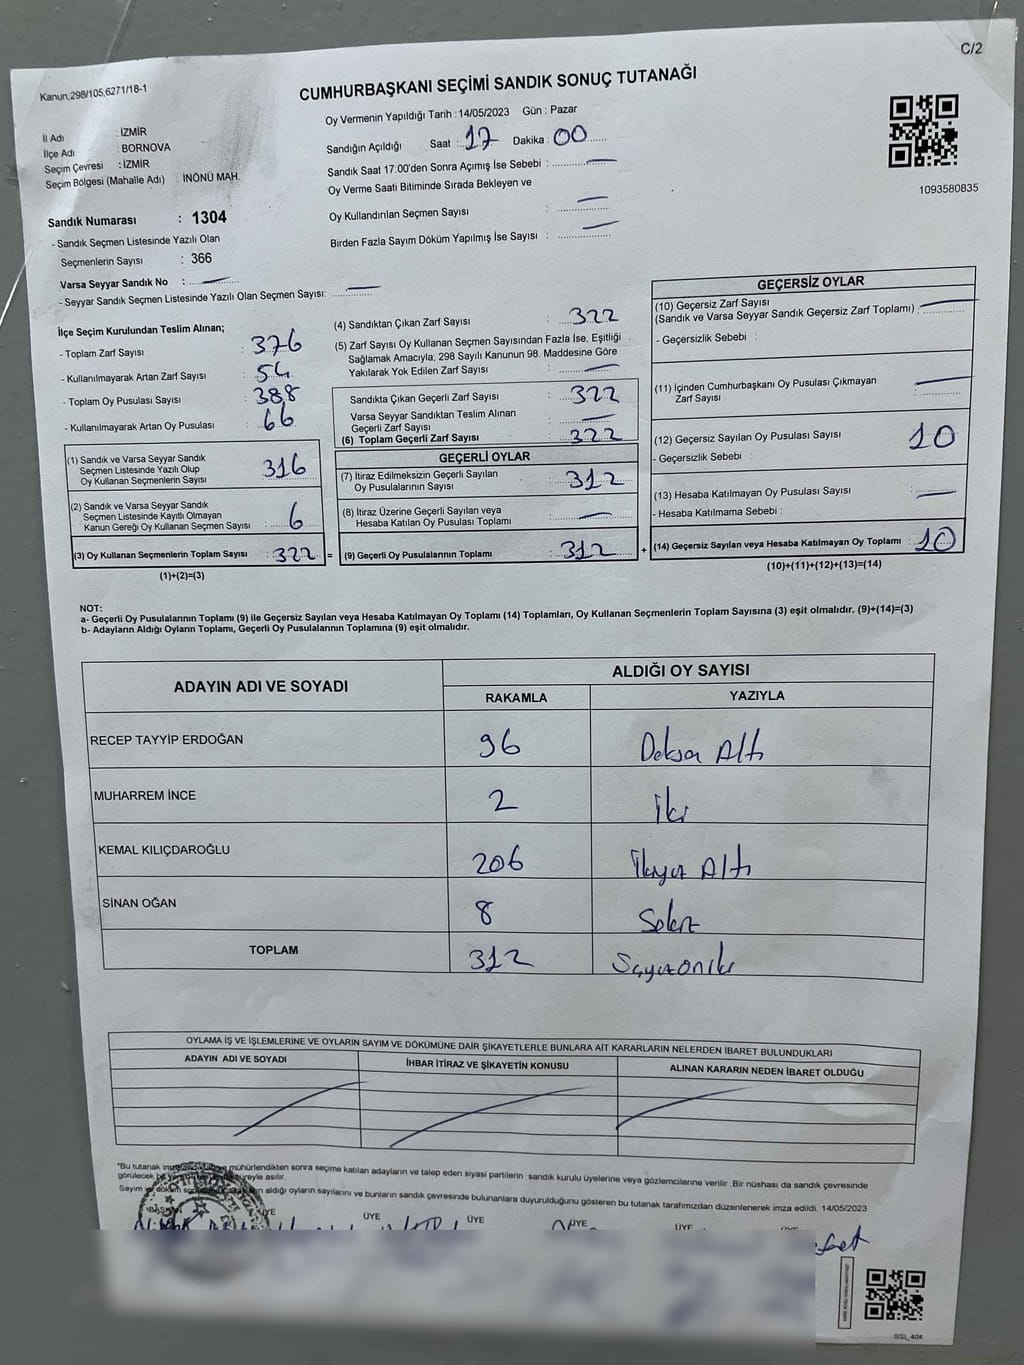 C/2
Kanun,298/105,6271/18-1
CUMHURBAŞKANI SEÇİMİ SANDIK SONUÇ TUTANAĞI
Oy Vermenin Yapıldığı Tarih : 14/05/2023 Gün : Pazar
İl Adı : İZMİR
İlçe Adı : BORNOVA
Seçim Çevresi : İZMİR
Seçim Bölgesi (Mahalle Adı) : İNÖNÜ MAH.
Sandığın Açıldığı Saat : 17 Dakika : 00
Sandık Saat 17:00'den Sonra Açımış İse Sebebi : —
Oy Verme Saati Bitiminde Sırada Bekleyen ve
Oy Kullandırılan Seçmen Sayısı : —
Birden Fazla Sayım Döküm Yapılmış İse Sayısı : —
1093580835
Sandık Numarası : 1304
- Sandık Seçmen Listesinde Yazılı Olan
Seçmenlerin Sayısı : 366
Varsa Seyyar Sandık No : —
- Seyyar Sandık Seçmen Listesinde Yazılı Olan Seçmen Sayısı: —
İlçe Seçim Kurulundan Teslim Alınan;
- Toplam Zarf Sayısı : 376
- Kullanılmayarak Artan Zarf Sayısı : 54
- Toplam Oy Pusulası Sayısı : 388
- Kullanılmayarak Artan Oy Pusulası : 66
(1) Sandık ve Varsa Seyyar Sandık
Seçmen Listesinde Yazılı Olup
Oy Kullanan Seçmenlerin Sayısı : 316
(2) Sandık ve Varsa Seyyar Sandık
Seçmen Listesinde Kayıtlı Olmayan
Kanun Gereği Oy Kullanan Seçmen Sayısı : 6
(3) Oy Kullanan Seçmenlerin Toplam Sayısı : 322 =
(1)+(2)=(3)
(4) Sandıktan Çıkan Zarf Sayısı : 322
(5) Zarf Sayısı Oy Kullanan Seçmen Sayısından Fazla İse, Eşitliği
Sağlamak Amacıyla, 298 Sayılı Kanunun 98. Maddesine Göre
Yakılarak Yok Edilen Zarf Sayısı : —
Sandıkta Çıkan Geçerli Zarf Sayısı : 322
Varsa Seyyar Sandıktan Teslim Alınan
Geçerli Zarf Sayısı : —
(6) Toplam Geçerli Zarf Sayısı : 322
GEÇERLİ OYLAR
(7) İtiraz Edilmeksizin Geçerli Sayılan
Oy Pusulalarının Sayısı : 312
(8) İtiraz Üzerine Geçerli Sayılan veya
Hesaba Katılan Oy Pusulası Toplamı : —
(9) Geçerli Oy Pusulalarının Toplamı : 312 +
GEÇERSİZ OYLAR
(10) Geçersiz Zarf Sayısı
(Sandık ve Varsa Seyyar Sandık Geçersiz Zarf Toplamı) : —
- Geçersizlik Sebebi :
(11) İçinden Cumhurbaşkanı Oy Pusulası Çıkmayan
Zarf Sayısı : —
(12) Geçersiz Sayılan Oy Pusulası Sayısı : 10
- Geçersizlik Sebebi :
(13) Hesaba Katılmayan Oy Pusulası Sayısı : —
- Hesaba Katılmama Sebebi :
(14) Geçersiz Sayılan veya Hesaba Katılmayan Oy Toplamı : 10
(10)+(11)+(12)+(13)=(14)
NOT:
a- Geçerli Oy Pusulalarının Toplamı (9) ile Geçersiz Sayılan veya Hesaba Katılmayan Oy Toplamı (14) Toplamları, Oy Kullanan Seçmenlerin Toplam Sayısına (3) eşit olmalıdır. (9)+(14)=(3)
b- Adayların Aldığı Oyların Toplamı, Geçerli Oy Pusulalarının Toplamına (9) eşit olmalıdır.
ADAYIN ADI VE SOYADI
ALDIĞI OY SAYISI
RAKAMLA YAZIYLA
RECEP TAYYİP ERDOĞAN 96 Doksan Altı
MUHARREM İNCE 2 iki
KEMAL KILIÇDAROĞLU 206 İkiyüz Altı
SİNAN OĞAN 8 Sekiz
TOPLAM 312 Üçyüzoniki
OYLAMA İŞ VE İŞLEMLERİNE VE OYLARIN SAYIM VE DÖKÜMÜNE DAİR ŞİKAYETLERLE BUNLARA AİT KARARLARIN NELERDEN İBARET BULUNDUKLARI
ADAYIN ADI VE SOYADI İHBAR İTİRAZ VE ŞİKAYETİN KONUSU ALINAN KARARIN NEDEN İBARET OLDUĞU
"Bu tutanak mühürlendikten sonra seçime katılan adayların ve talep eden siyasi partilerin sandık kurulu üyelerine veya gözlemcilerine verilir. Bir nüshası da sandık çevresinde
görülecek süreyle asılır.
Sayım ve döküm aldığı oyların sayılarını ve bunların sandık çevresinde bulunanlara duyurulduğunu gösteren bu tutanak tarafımızdan düzenlenerek imza edildi. 14/05/2023
BAŞKAN ÜYE ÜYE ÜYE ÜYE ÜYE
SSI_404